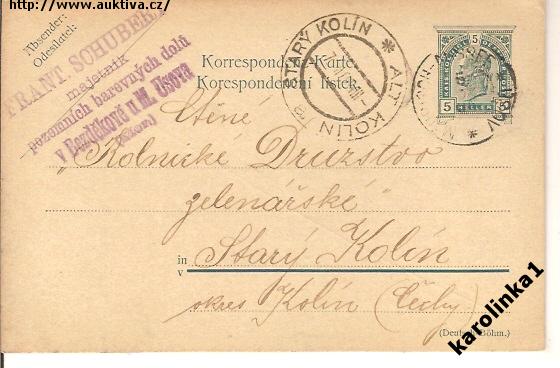 http://www.auktiva.cz/
Absender:
Odesílatel:
FRANT. SCHUBERT
majetník
pozemních barevných dolů
Korrespondenz-Karte
Korespondenční lístek
STARÝ KOLÍN * ALT KOLIN
5 5
5 HELLER 5
Ctěné
„Rolnické Družstvo
zelenářské"
in
v
Starý Kolín
okres Kolín (Čechy)
(Deutsch-Böhm.)
karolinka1